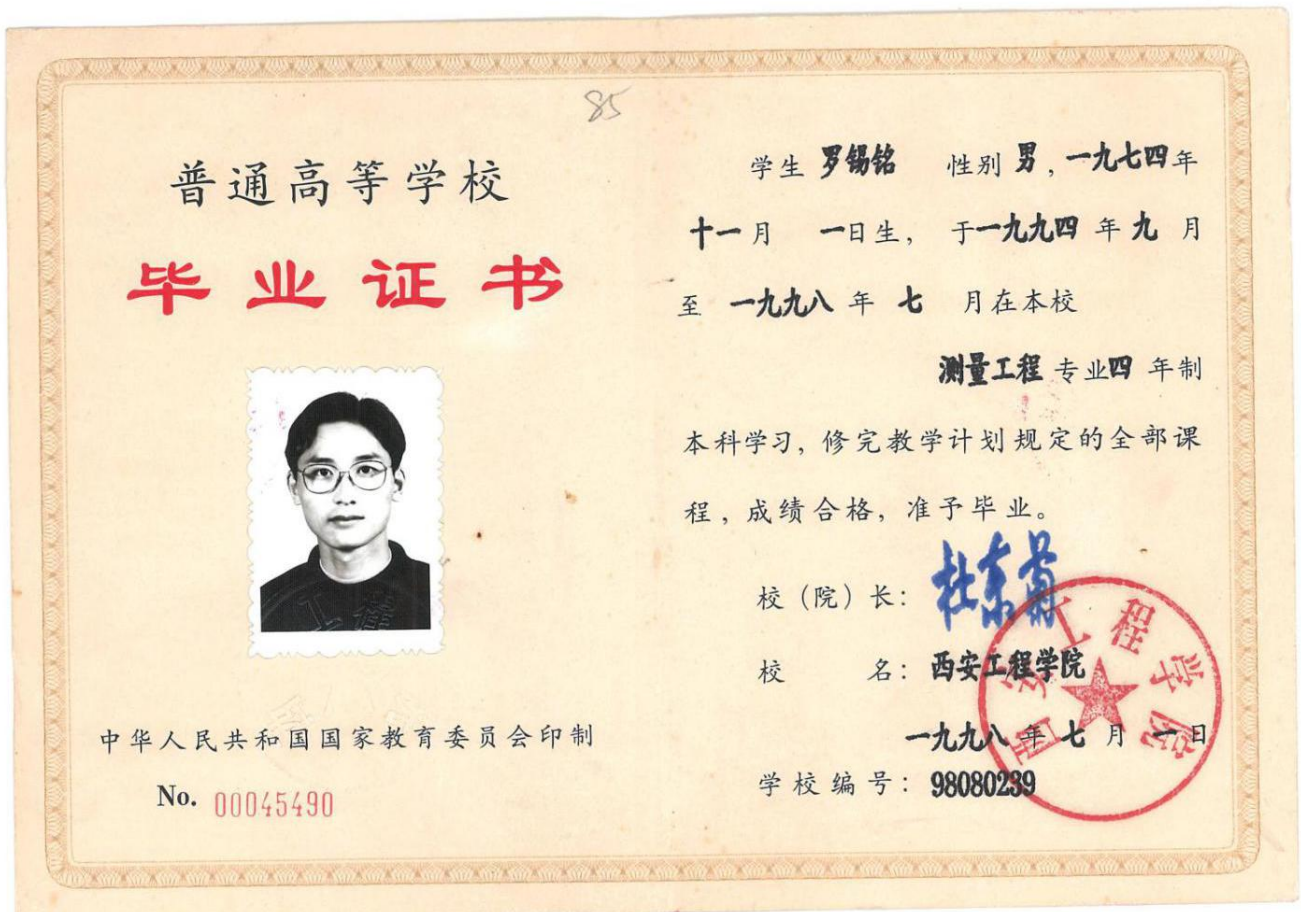 85
普通高等学校
毕业证书
中华人民共和国国家教育委员会印制
No. 00045490
学生 罗锡铭 性别 男,一九七四年
十一月 一日生, 于一九九四 年 九 月
至 一九九八 年 七 月在本校
测量工程 专业四 年制
本科学习, 修完教学计划规定的全部课
程, 成绩合格, 准予毕业。
校(院)长: 杜东菊
校 名: 西安工程学院
一九九八 年 七 月 一 日
学校编号: 98080239
西安工程学院